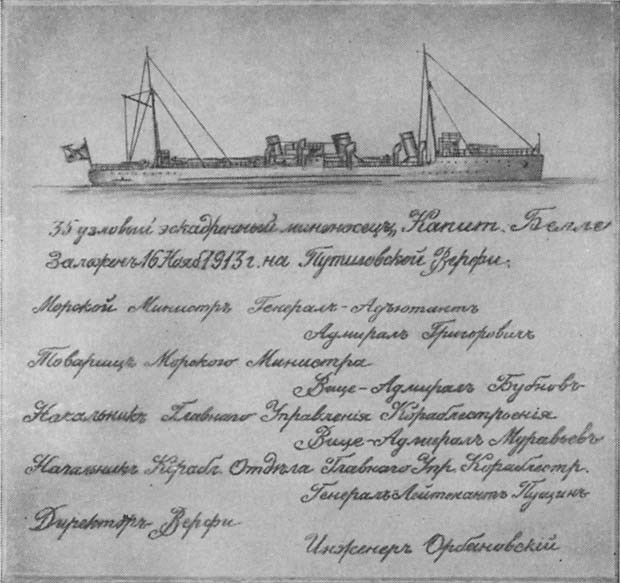 35 узловый эскадренный миноносецъ „Капит. Белле“
Заложенъ 16 Нояб 1913 г. на Путиловской Верфи.
Морской Министръ Генералъ-Адъютантъ
Адмиралъ Григоровичъ
Товарищъ Морского Министра
Вице-Адмиралъ Бубновъ
Начальникъ Главнаго Управленія Кораблестроенія
Вице-Адмиралъ Муравьевъ
Начальникъ Корабл. Отдѣла Главнаго Упр. Кораблестр.
Генералъ-Лейтенантъ Пущинъ
Директоръ Верфи
Инженеръ Орбановскій